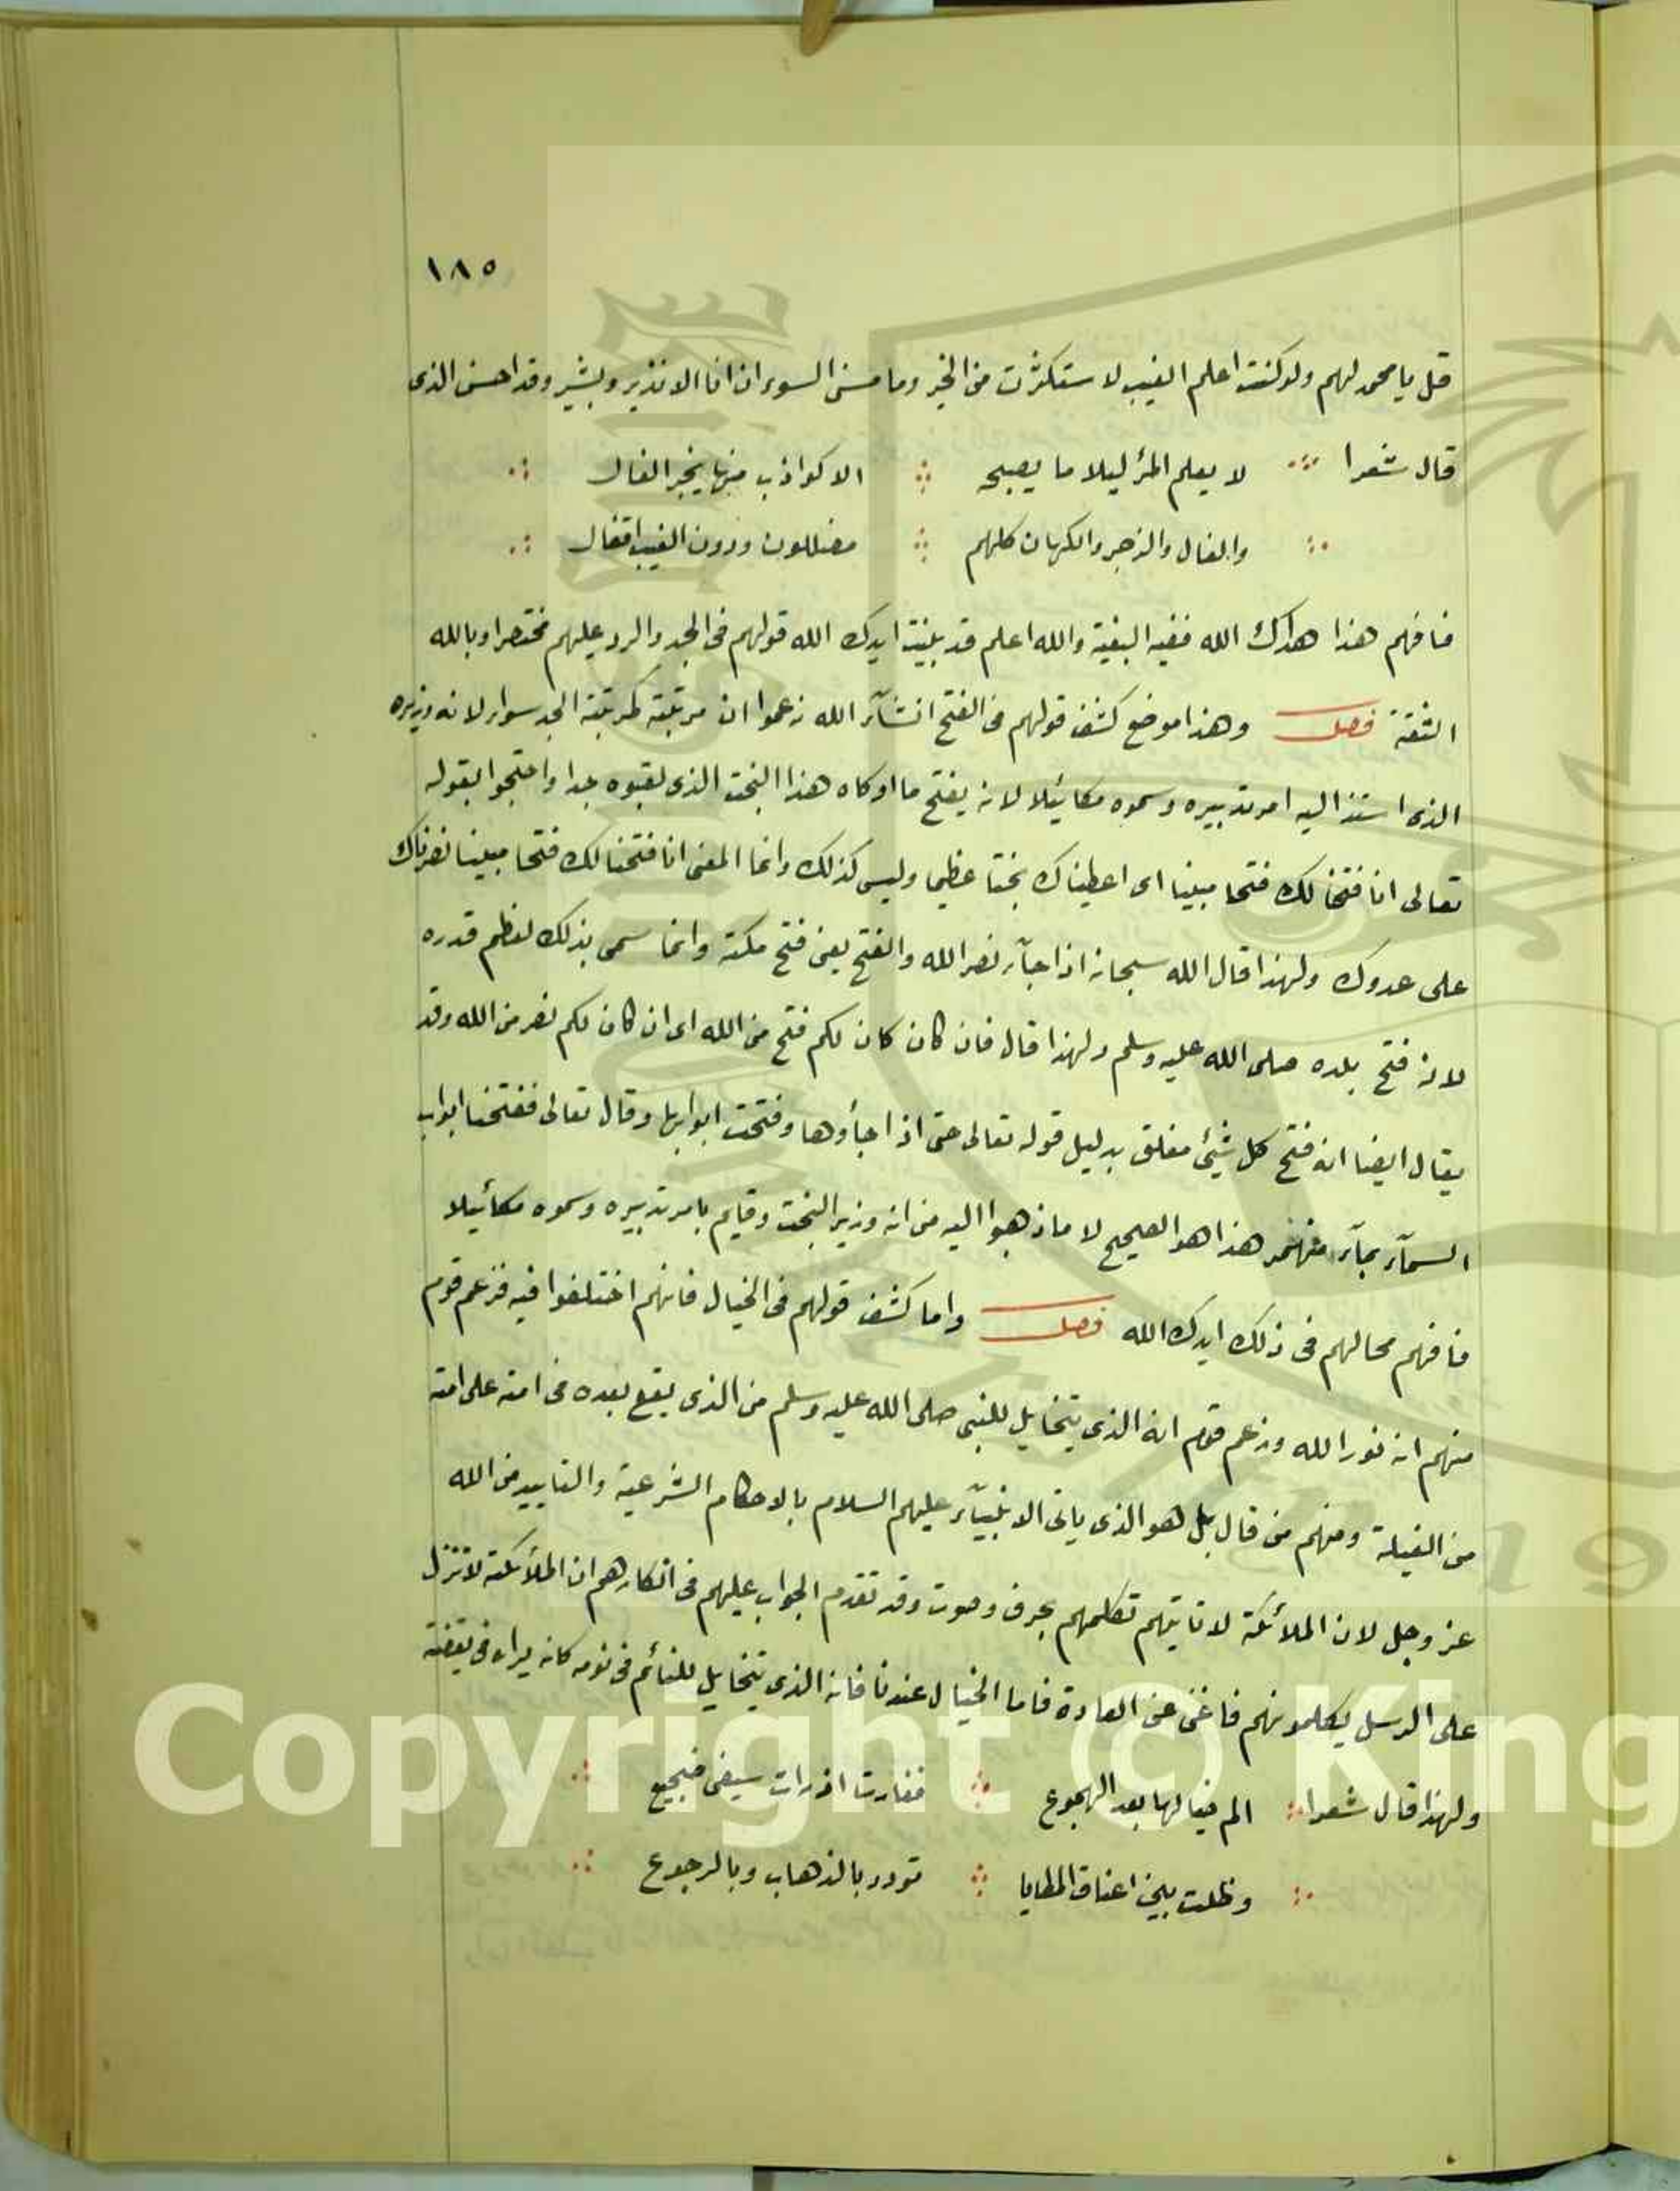 ١٨٥
قل يا محمد لهم ولو كنت اعلم الغيب لاستكثرت من الخير وما مسنى السوء ان انا الا نذير وبشير وقد احسن الذى
قال شعرا ∴ لا يعلم المرٔ ليلا ما يصبحه ∴ الا كواذب منها يخبر الفال ∴
∴ والفال والزجر والكهان كلهم ∴ مضللون ودون الغيب اقفال ∴
فافهم هذا هداك الله ففيه البغية والله اعلم قد بينت ايدك الله قولهم فى الجد والرد عليهم مختصرا وبالله
الثقة فصل وهذا موضع كشف قولهم فى الفتح انشآء الله زعموا ان مرتبته كمرتبة الجد سواء لانه وزيره
الذى استند اليه امر تدبيره وسموه مكائيلا لانه يفتح ما اوكاه هذا البخت الذى لقبوه جدا واحتجوا بقوله
تعالى انا فتحنا لك فتحا مبينا اى اعطيناك بختا عظيما وليس كذلك وانما المعنى انا فتحنا لك فتحا مبينا نصرناك
على عدوك ولهذا قال الله سبحانه اذا جآء نصر الله والفتح يعنى فتح مكة وانما سمى بذلك لعظم قدره
لانه فتح بلده صلى الله عليه وسلم ولهذا قال فان كان كان لكم فتح من الله اى ان كان لكم نصر من الله وقد
يقال ايضا انه فتح كل شيئ مغلق بدليل قوله تعالى حتى اذا جأوها وفتحت ابوابها وقال تعالى ففتحنا ابواب
السمآء بمآء منهمر هذا هو الصحيح لا ما ذهبوا اليه من انه وزير البخت وقايم بامر تدبيره وسموه مكائيلا
فافهم محالهم فى ذلك ايدك الله فصل واما كشف قولهم فى الخيال فانهم اختلفوا فيه فزعم قوم
منهم انه نور الله وزعم قوم انه الذى يتخايل للنبى صلى الله عليه وسلم من الذى يقع بعده فى امته على امته
من الغيلة ومنهم من قال بل هو الذى ياتى الانبيآء عليهم السلام بالاحكام الشرعية والتاييد من الله
عز وجل لان الملائكة لا تاتيهم تكلمهم بحرف وصوت وقد تقدم الجواب عليهم فى انكارهم ان الملائكة لا تنزل
على الرسل يكلمونهم فاغنى عن العادة فاما الخيال عندنا فانه الذى يتخايل للنائم فى نومه كانه يراه فى يقضته
ولهذا قال شعرا ∴ الم خيالها بعد الهجوع ∴ فغارت اذ رات سيفى ضجيع ∴
∴ وظلت بين اعناق المطايا ∴ تودد بالذهاب وبالرجوع ∴
Copyright © King
19